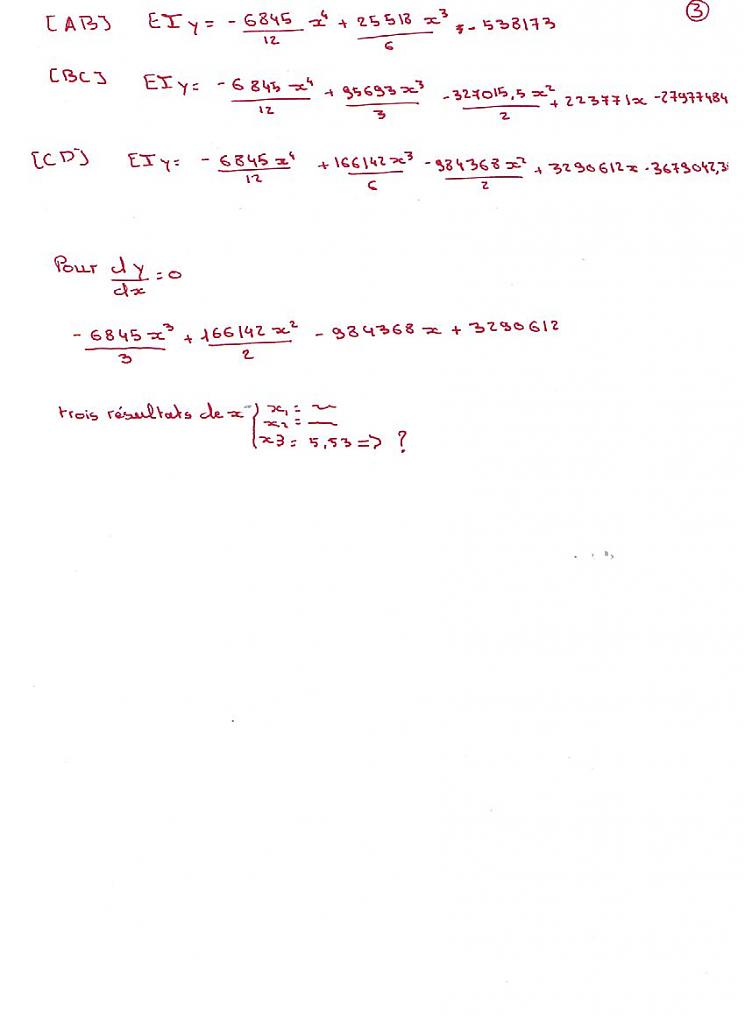 ③
[AB] EIy = - 6845/12 x⁴ + 25518 x³/6 - 538173
[BC] EIy = - 6845 x⁴/12 + 95693 x³/3 - 327015,5 x²/2 + 223771x - 27977484
[CD] EIy = - 6845 x⁴/12 + 166142 x³/6 - 984368 x²/2 + 3290612 x - 3679042,3
Pour dy/dx = 0
- 6845 x³/3 + 166142 x²/2 - 984368 x + 3290612
trois résultats de x { x₁ = ~
x₂ = —
x3 = 5,53 => ?